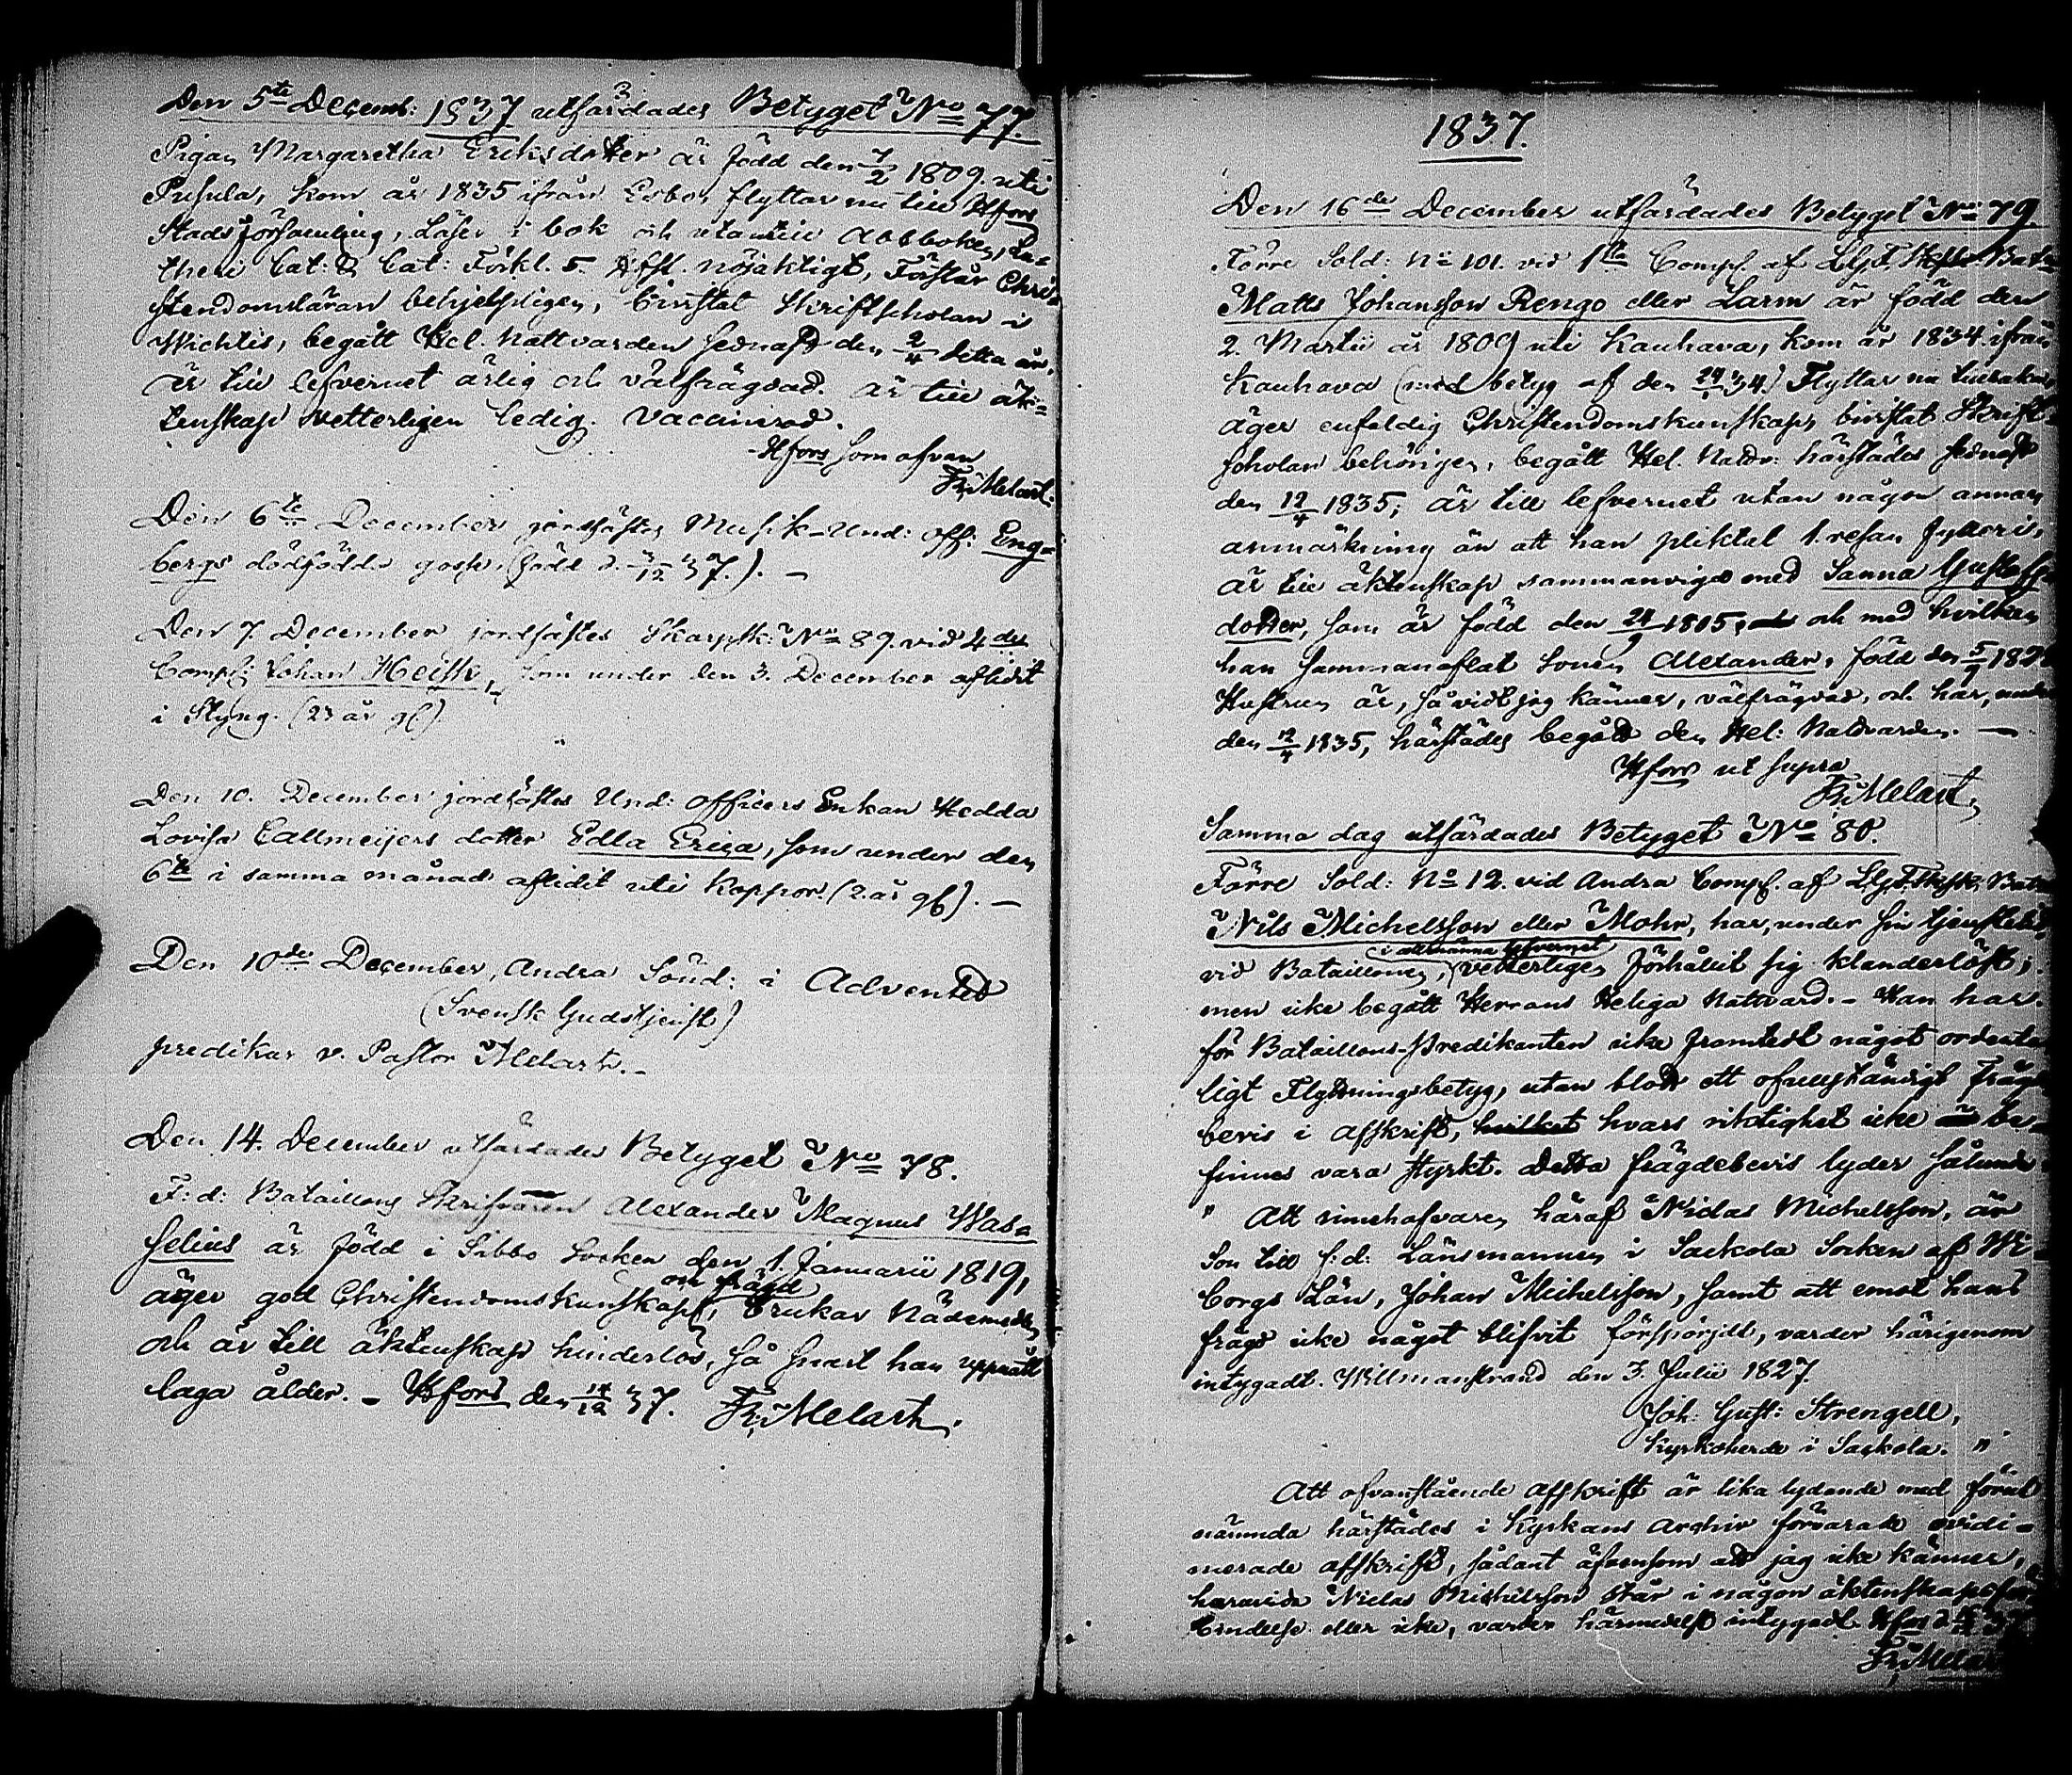 Den 5te Decemb: 1837 utfärdades Betyget No 77.
Pigan Margaretha Eriksdotter är född den 7/2 1809. uti
Pusula, kom år 1835 ifrån Esbo, flyttar nu till Hfors
Stads församling, Läser i bok och utantill Abcboken, Lu-
theri Cat: & Cat: Förkl. 5. Hfst. nöjaktigt, Förstår Chri-
stendomsläran behjelpligen, bivistat Skriftscholan i
Wichtis, begått Hel. Nattvarden sednast den 2/4 detta år,
är till lefvernet ärlig och välfrägdad. är till äk-
tenskap vetterligen ledig. Vaccinerad.
Hfors som ofvan
Fr. Melart.
Den 6te December jordfästes Musik-Und: Off: Eng-
bergs dödfödda gosse, (född d. 3/12 37.). —
Den 7. December jordfästes Skarpsk: No 89. vid 4de
Comp: Johan Heisk, som under den 3. December aflidit
i Styng. (23 år gl)
Den 10. December jordfästes Und: Officers Enkan Hedda
Lovisa Callmeijers dotter Edla Erica, som under den
6te i samma månad aflidit uti Koppor. (2. år gl). —
Den 10de December, Andra Sönd: i Advented
(Svensk Gudstjenst)
predikar v. Pastor Melart. -
Den 14. December utfärdades Betyget No 78.
F: d: Bataillons Skrifvaren Alexander Magnus Wasa-
selius är född i Sibbo Socken den 1. Januarii 1819,
och frägd
äger god Christendomskunskap, brukar Nådemedlen
och är till äktenskap hinderlös, så snart han uppnått
laga ålder. - Hfors den 14/12 37. Fr. Melart.
1837.
Den 16de December utfärdades Betyget No 79.
Förre Sold: No 101. vid 1sta Comp. af LGd. Bat:
Matts Johansson Rengo eller Larm är född den
2. Martii år 1809 uti Kauhava, kom år 1834. ifrån
Kauhava (med betyg af den 24/ 34.) Flyttar nu tillbaka,
äger enfaldig Christendomskunskap, bivistat Skrift-
scholan behörigen, begått Hel. Nattv: härstädes sednast
den 12/4 1835, är till lefvernet utan någon annan
anmärkning än att han pliktat 1. resan fylleri,
är till äktenskap sammanvigd med Sanna Gustafs-
dotter, som är född den 24/9 1805, och med hvilken
han sammanaflat Sonen Alexander, född den 5/
Hustrun är, så vidt jag känner, välfrägdad, och har, under
den 12/4 1835, härstädes begått den Hel: Nattvarden. —
Hfors ut supra
Fr. Melart,
Samma dag utfärdades Betyget No 80.
Förre Sold: No 12. vid Andra Comp. af Bat:
Nils Michelsson eller Mohr, har, under sin tjenstetid,
i allmänna lefvernet
vid Bataillonen, vetterligen förhållit sig klanderlöst;
men icke begått Herrans Heliga Nattvard. - Han har
för Bataillons-Predikanten icke framtedt något ordent-
ligt Flyttningsbetyg, utan blott ett ofullständigt frägde-
bevis i afskrift, hvilket hvars riktighet icke be-
finnes vara styrkt. Detta frägdebevis lyder sålunde:
" Att innehafvaren häraf Niclas Michelsson, är
Son till f: d: Länsmannen i Sackola Socken af Wi-
borgs Län, Johan Michelsson, samt att emot hans
frägd icke något blifvit försporjdt, varder härigenom
intygadt. Willmanstrand den 3. Julii 1827.
Joh: Gust: Strengell,
Kyrkoherde i Sackola. "
Att ofvanstående afskrift är lika lydande med förut
nämnda härstädes i Kyrkans Archiv förvarade ovidi-
merade afskrift, sådant äfvensom att jag icke känner,
huruvida Niclas Michelsson står i någon äktenskapsför-
bindelse eller icke, varder härmedelst intygadt. Hfors d.
Fr. Melart